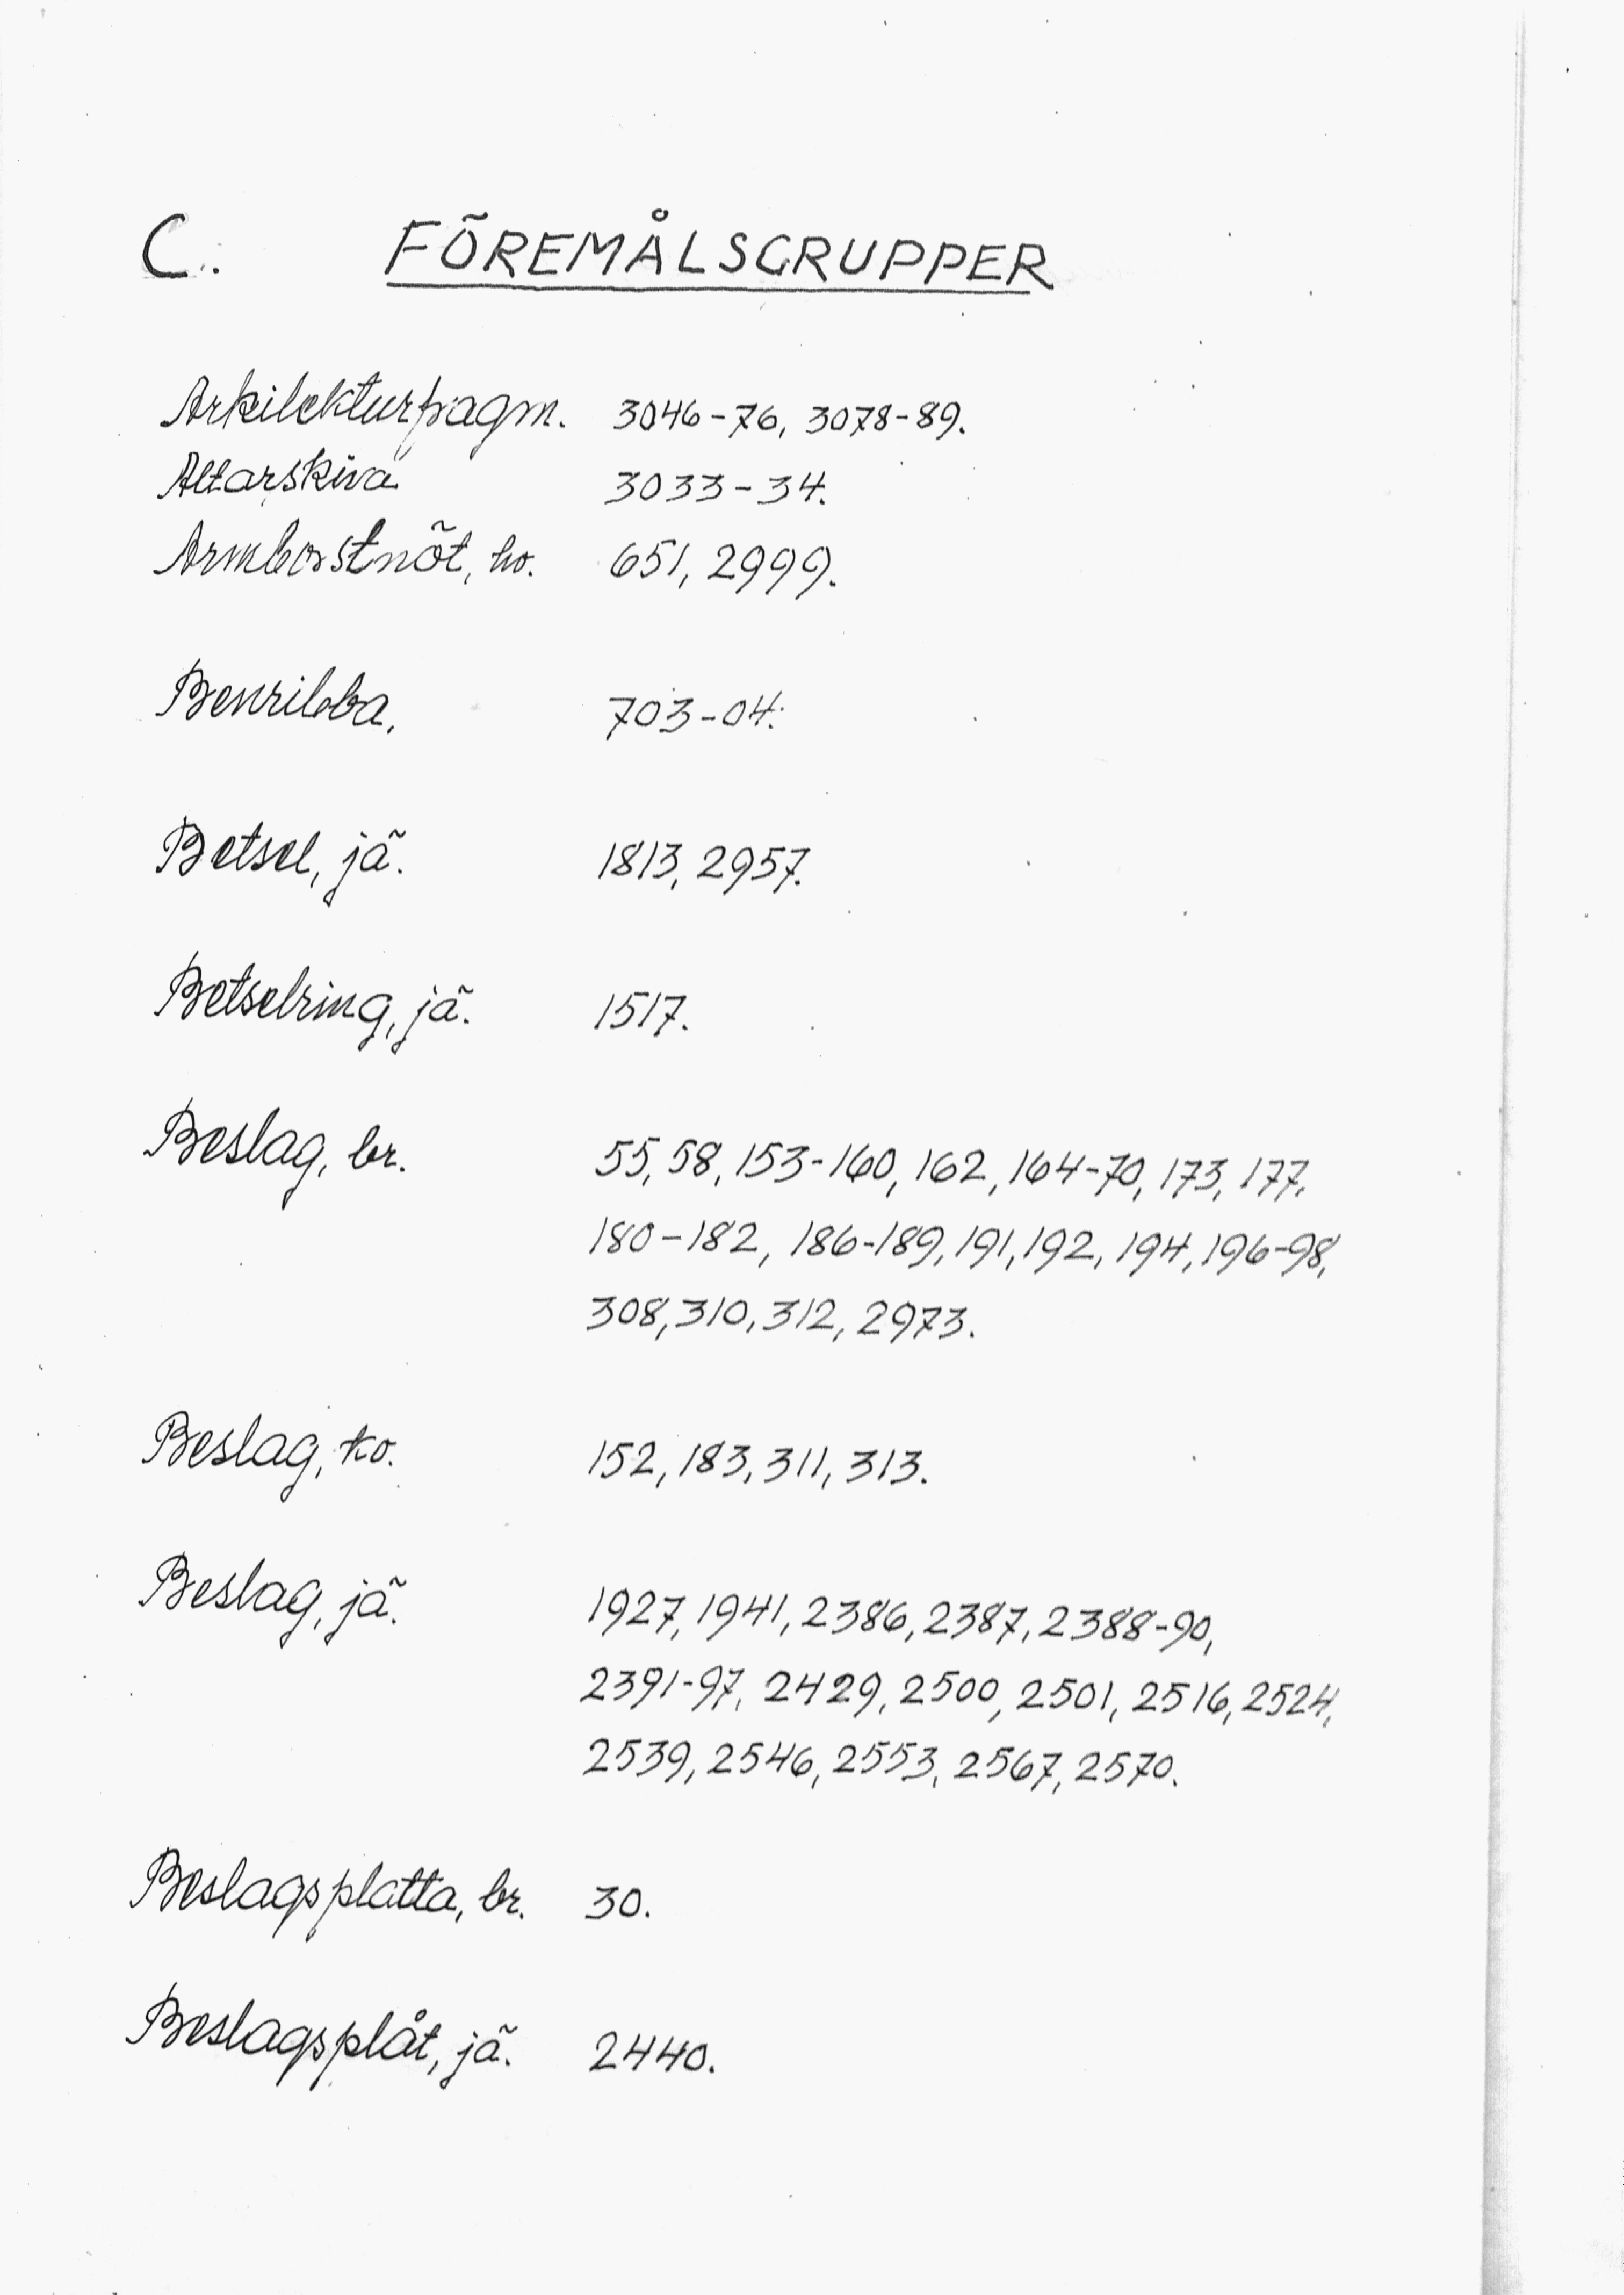 C. FÖREMÅLSGRUPPER
Arkitekturfragm. 3046-76, 3078-89.
Altarskiva 3033-34.
Armborstnöt, ho. 651, 2999.
Benribba, 703-04.
Betsel, jä. 1813, 2957.
Betselring, jä. 1517.
Beslag, br. 55, 58, 153-160, 162, 164-70, 173, 177,
180-182, 186-189, 191, 192, 194, 196-98,
308, 310, 312, 2973.
Beslag, ko. 152, 183, 311, 313.
Beslag, jä. 1927, 1941, 2386, 2387, 2388-90,
2391-97, 2429, 2500, 2501, 2516, 2524,
2539, 2546, 2553, 2567, 2570.
Beslagsplatta, br. 30.
Beslagsplåt, jä. 2440.